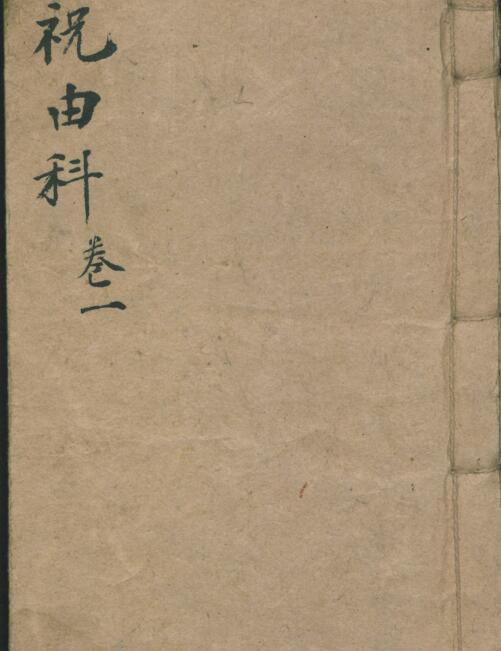 祝由科
卷一